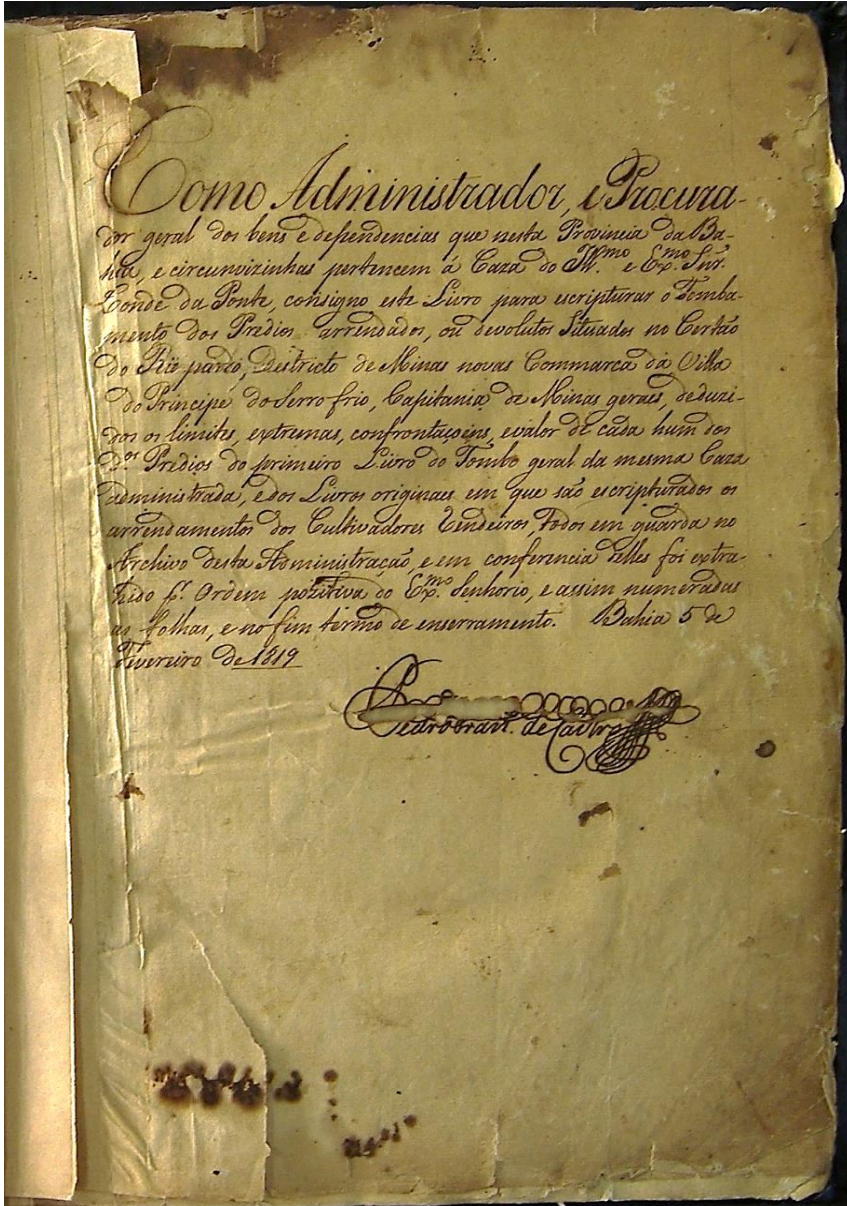 Como Administrador, e Procura-
dor geral dos bens e dependencias que nesta Provincia da Ba-
hia, e circunvizinhas pertencem á Caza do Ill.mo e Ex.mo Snr.
Conde da Ponte, consigno este Livro para escripturar o Tomba-
mento dos Predios arrendados, ou devolutos Situados no Certão
do Rio pardo, Districto de Minas novas Commarca da Villa
do Principe do Serro frio, Capitania de Minas geraes, deduzi-
dos os limites, extremas, confrontaçoens, e valor de cada hum dos
D.os Predios do primeiro Livro do Tombo geral da mesma Caza
administrada, e dos Livros originaes em que são escripturados os
arrendamentos dos Cultivadores Rendeiros, todos em guarda no
Archivo desta Administração, e em conferencia delles foi extra-
hido p.r Ordem pozitiva do Ex.mo Senhorio, e assim numeradas
as folhas, e no fim termo de enserramento. Bahia 5 de
Fevereiro de 1819
de Castro